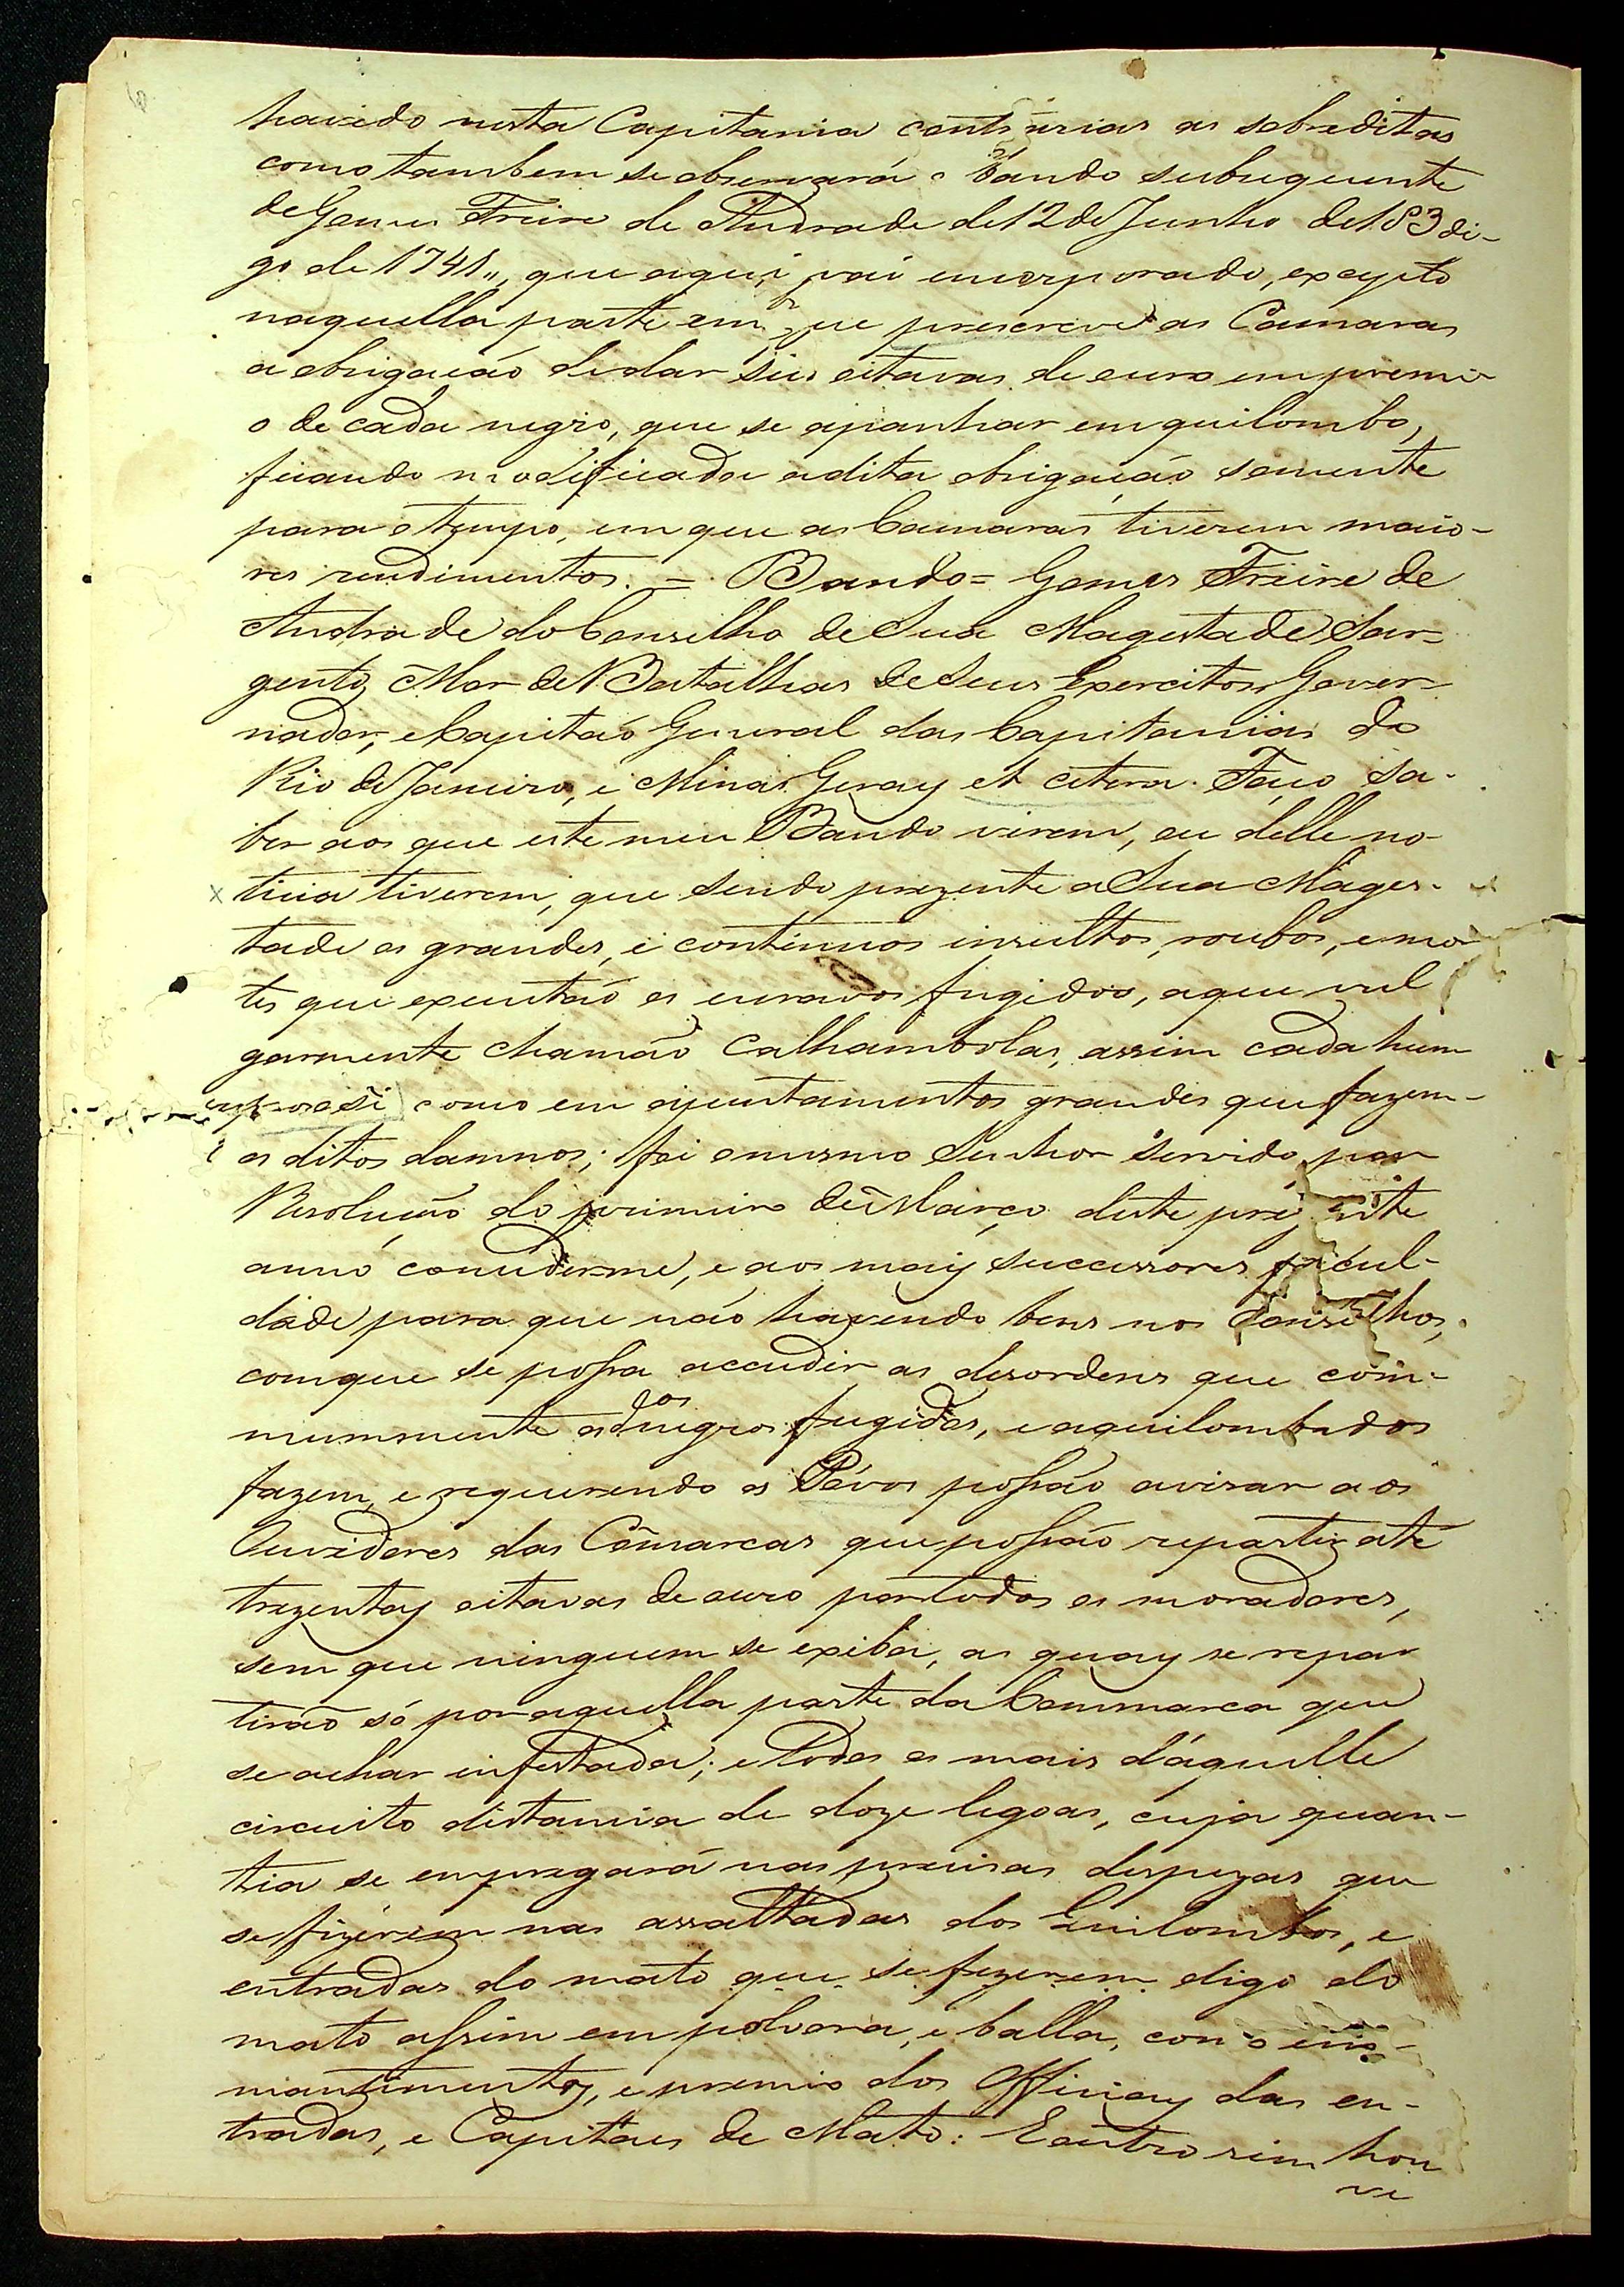 havido nesta Capitania contrarias as sobreditas
como tambem se observará o Bando subsequente
de Gomes Freire de Andrade de 12 de Junho de 183 di-
go de 1741,, que aqui vai encorporado, excepto
naquella parte em que prescreve as Camaras
a obrigação de dar seis oitavas de ouro em premi-
o de cada negro, que se apanhar em quilombo,
ficando modificada a dita obrigação somente
para o tempo, em que as Camaras tiverem maio-
res rendimentos. = Bando = Gomes Freire de
Andrade do Conselho de Sua Magestade, Sar-
gento Mor de Batalhas de Seus Exercitos, Gover-
nador, e Capitaõ General das Capitanias do
Rio de Janeiro, e Minas Geray et cetera. Faço sa-
ber aos que este meu Bando virem, ou delle no-
ticia tiverem, que sendo prezente a Sua Mages-
tade os grandes, e continuos insultos, roubos, e mor
tes que executaõ os escravos fugidos, a que vul
garmente chamão Calhambolas, assim cada hum
per si como em ajuntamentos grandes que fazem
os ditos damnos; foi o mesmo Senhor servido por
Resolução do primeiro de Março deste prezente
anno concederme, e aos mais successores facul-
dade para que não havendo bens nos Conselhos,
com que se possa accudir as desordens que com-
mummente os dos negros fugidos, e aquilombados
fazem, e requerendo os Póvos possão avisar aos
Ouvidores das Cõmarcas que possão repartir até
trezentas oitavas de ouro por todos os moradores,
sem que ninguem se exiba, as quay se repar
tiraõ só por aquella parte da Commarca que
se achar infestada; e todos os mais d'aquelle
circuito distancia de doze legoas, cuja quan-
tia se empregará nas precisas despezas que
se fizerem nas assaltadas dos Quilombos, e
entradas do mato que se fizerem digo do
mato assim em polvora, e balla, como em
mantimentos, e premio dos Officiay das en-
tradas, e Capitães de Mato: E outro sim hou
ve